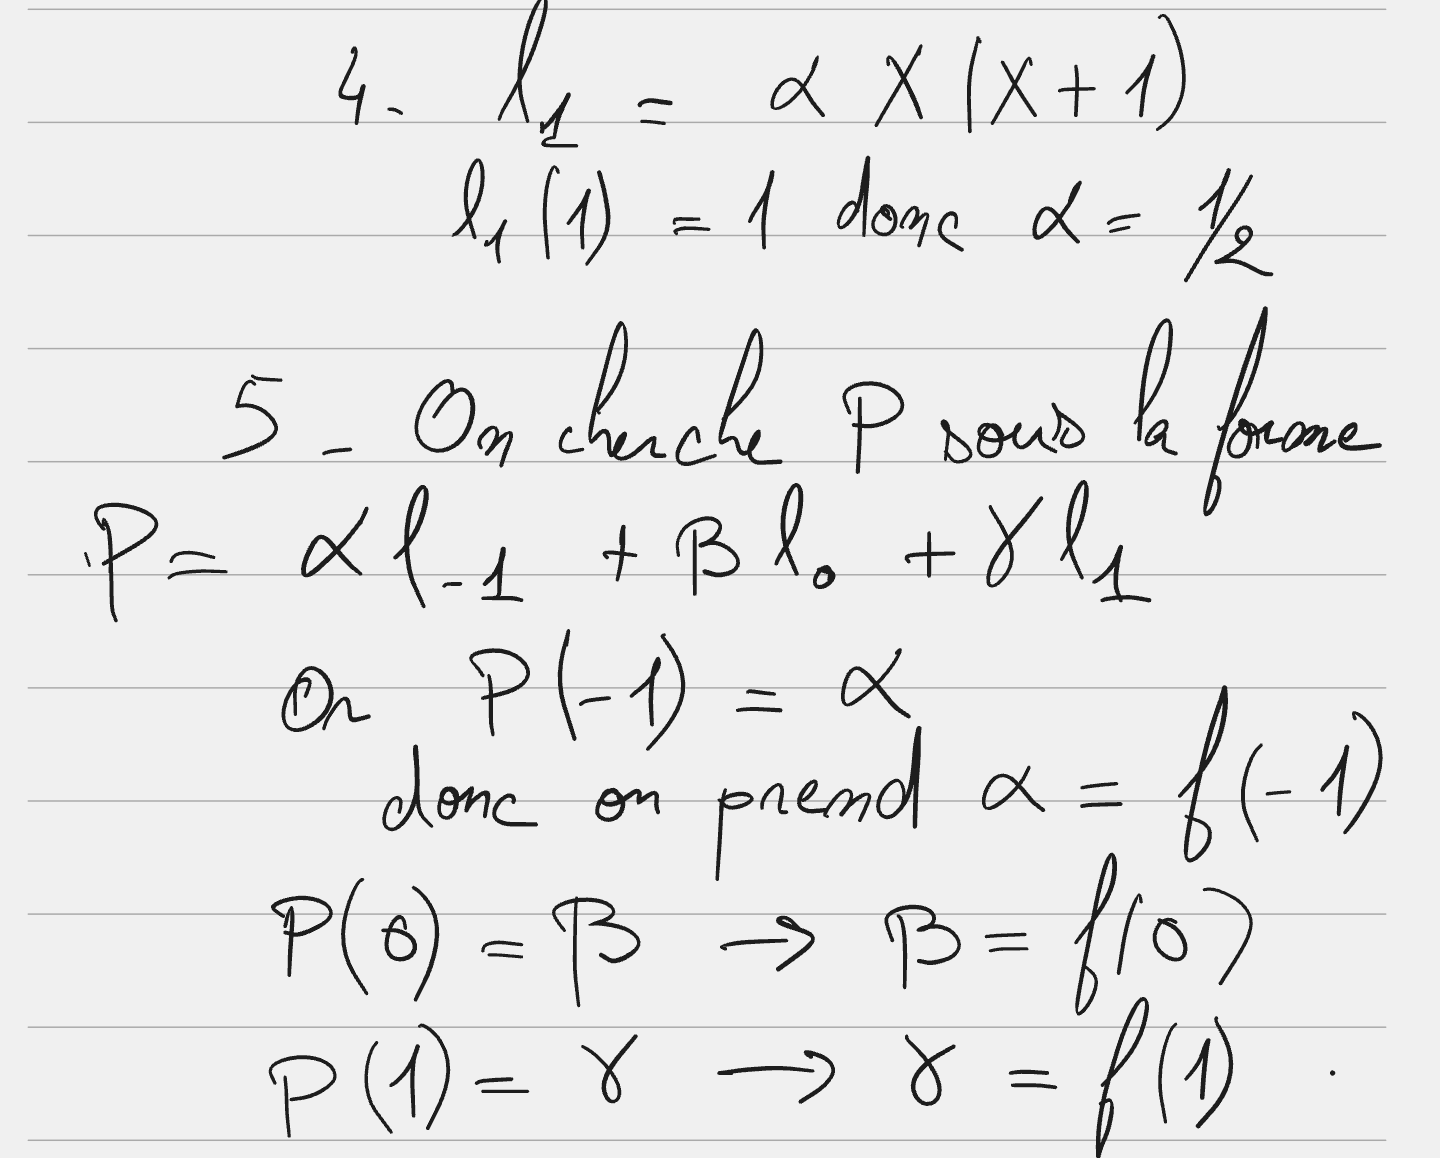 4- l₁ = α X (X + 1)
l₁(1) = 1 donc α = 1/2
5 - On cherche P sous la forme
P = α l₋₁ + β l₀ + γ l₁
Or P(-1) = α
donc on prend α = f(-1)
P(0) = β → β = f(0)
P(1) = γ → γ = f(1).